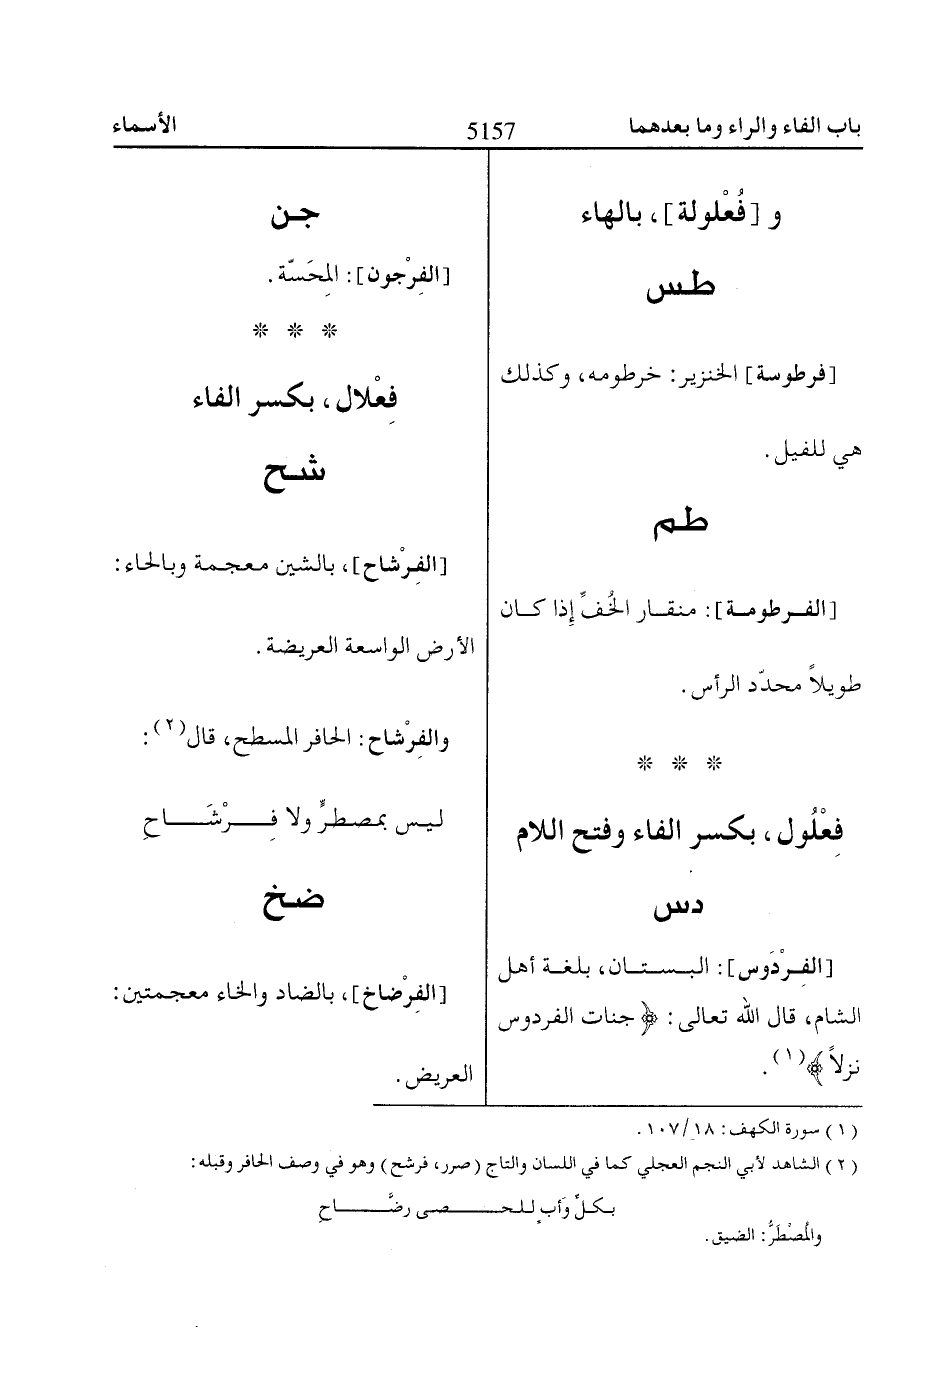 باب الفاء والراء وما بعدهما
5157
الأسماء
و [فُعْلولة]، بالهاء
طس
[فرطوسة] الخنزير: خرطومه، وكذلك
هي للفيل.
طم
[الفرطومة]: منقار الخُفِّ إِذا كان
طويلاً محدّد الرأس.
* * *
فِعْلَول، بكسر الفاء وفتح اللام
دس
[الفِرْدَوس]: البستان، بلغة أهل
الشام، قال الله تعالى: ﴿جنات الفردوس
نزلاً﴾(١).
جن
[الفِرْجون]: المِحَسّة.
* * *
فِعْلال، بكسر الفاء
شح
[الفِرْشاح]، بالشين معجمة وبالحاء:
الأرض الواسعة العريضة.
والفِرْشاح: الحافر المسطح، قال(٢):
ليس بمصطرٍّ ولا فِرْشَاحِ
ضخ
[الفِرْضاخ]، بالضاد والخاء معجمتين:
العريض.
(١) سورة الكهف: ١٨/١٠٧.
(٢) الشاهد لأبي النجم العجلي كما في اللسان والتاج (صرر، فرشح) وهو في وصف الحافر وقبله:
بكلِّ وَأبٍ للحصى رضَّاحِ
والمُصْطَرُّ: الضيق.